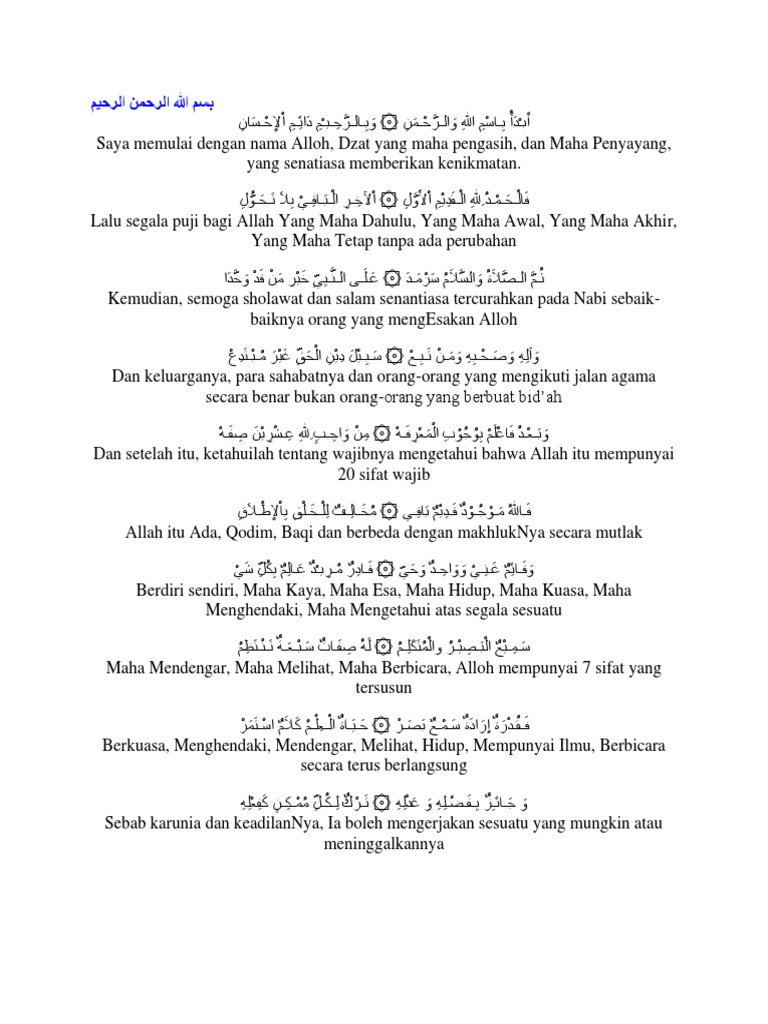 بسم الله الرحمن الرحيم
أَبْدَأُ بِاسْمِ اللهِ وَالرَّحْمَنِ ۞ وَبِالرَّحِيْمِ دَائِمِ اْلإِحْسَانِ
Saya memulai dengan nama Alloh, Dzat yang maha pengasih, dan Maha Penyayang,
yang senatiasa memberikan kenikmatan.
فَالْحَمْدُ ِللهِ الْقَدِيْمِ اْلأَوَّلِ ۞ اْلآخِرِ الْبَاقِيْ بِلاَ تَحَوُّلِ
Lalu segala puji bagi Allah Yang Maha Dahulu, Yang Maha Awal, Yang Maha Akhir,
Yang Maha Tetap tanpa ada perubahan
ثُمَّ الصَّلاَةُ وَالسَّلاَمُ سَرْمَدَ ۞ عَلَى النَّبِيِّ خَيْرِ مَنْ قَدْ وَحَّدَا
Kemudian, semoga sholawat dan salam senantiasa tercurahkan pada Nabi sebaik-
baiknya orang yang mengEsakan Alloh
وَآلِهِ وَصَحْبِهِ وَمَنْ تَبِعْ ۞ سَبِيْلَ دِيْنِ الْحَقِّ غَيْرَ مُبْتَدِعْ
Dan keluarganya, para sahabatnya dan orang-orang yang mengikuti jalan agama
secara benar bukan orang-orang yang berbuat bid’ah
وَبَعْدُ فَاعْلَمْ بِوُجُوْبِ الْمَعْرِفَهْ ۞ مِنْ وَاجِبٍ ِللهِ عِشْرِيْنَ صِفَهْ
Dan setelah itu, ketahuilah tentang wajibnya mengetahui bahwa Allah itu mempunyai
20 sifat wajib
فَاللهُ مَوْجُوْدٌ قَدِيْمٌ بَاقِي ۞ مُخَالِفٌ لِلْخَلْقِ بِاْلإِطْلاَقِ
Allah itu Ada, Qodim, Baqi dan berbeda dengan makhlukNya secara mutlak
وَقَائِمٌ غَنِيْ وَوَاحِدٌ وَحَيّ ۞ قَادِرٌ مُرِيْدٌ عَالِمٌ بِكُلِّ شَيْ
Berdiri sendiri, Maha Kaya, Maha Esa, Maha Hidup, Maha Kuasa, Maha
Menghendaki, Maha Mengetahui atas segala sesuatu
سَمِيْعٌ الْبَصِيْرُ والْمُتَكَلِّمُ ۞ لَهُ صِفَاتٌ سَبْعَةٌ تَنْتَظِمُ
Maha Mendengar, Maha Melihat, Maha Berbicara, Alloh mempunyai 7 sifat yang
tersusun
فَقُدْرَةٌ إِرَادَةٌ سَمْعٌ بَصَرْ ۞ حَيَاةٌ الْعِلْمُ كَلاَمٌ اسْتَمَرْ
Berkuasa, Menghendaki, Mendengar, Melihat, Hidup, Mempunyai Ilmu, Berbicara
secara terus berlangsung
وَ جَائِزٌ بِفَضْلِهِ وَ عَدْلِهِ ۞ تَرْكٌ لِكُلِّ مُمْكِنٍ كَفِعْلِهِ
Sebab karunia dan keadilanNya, Ia boleh mengerjakan sesuatu yang mungkin atau
meninggalkannya